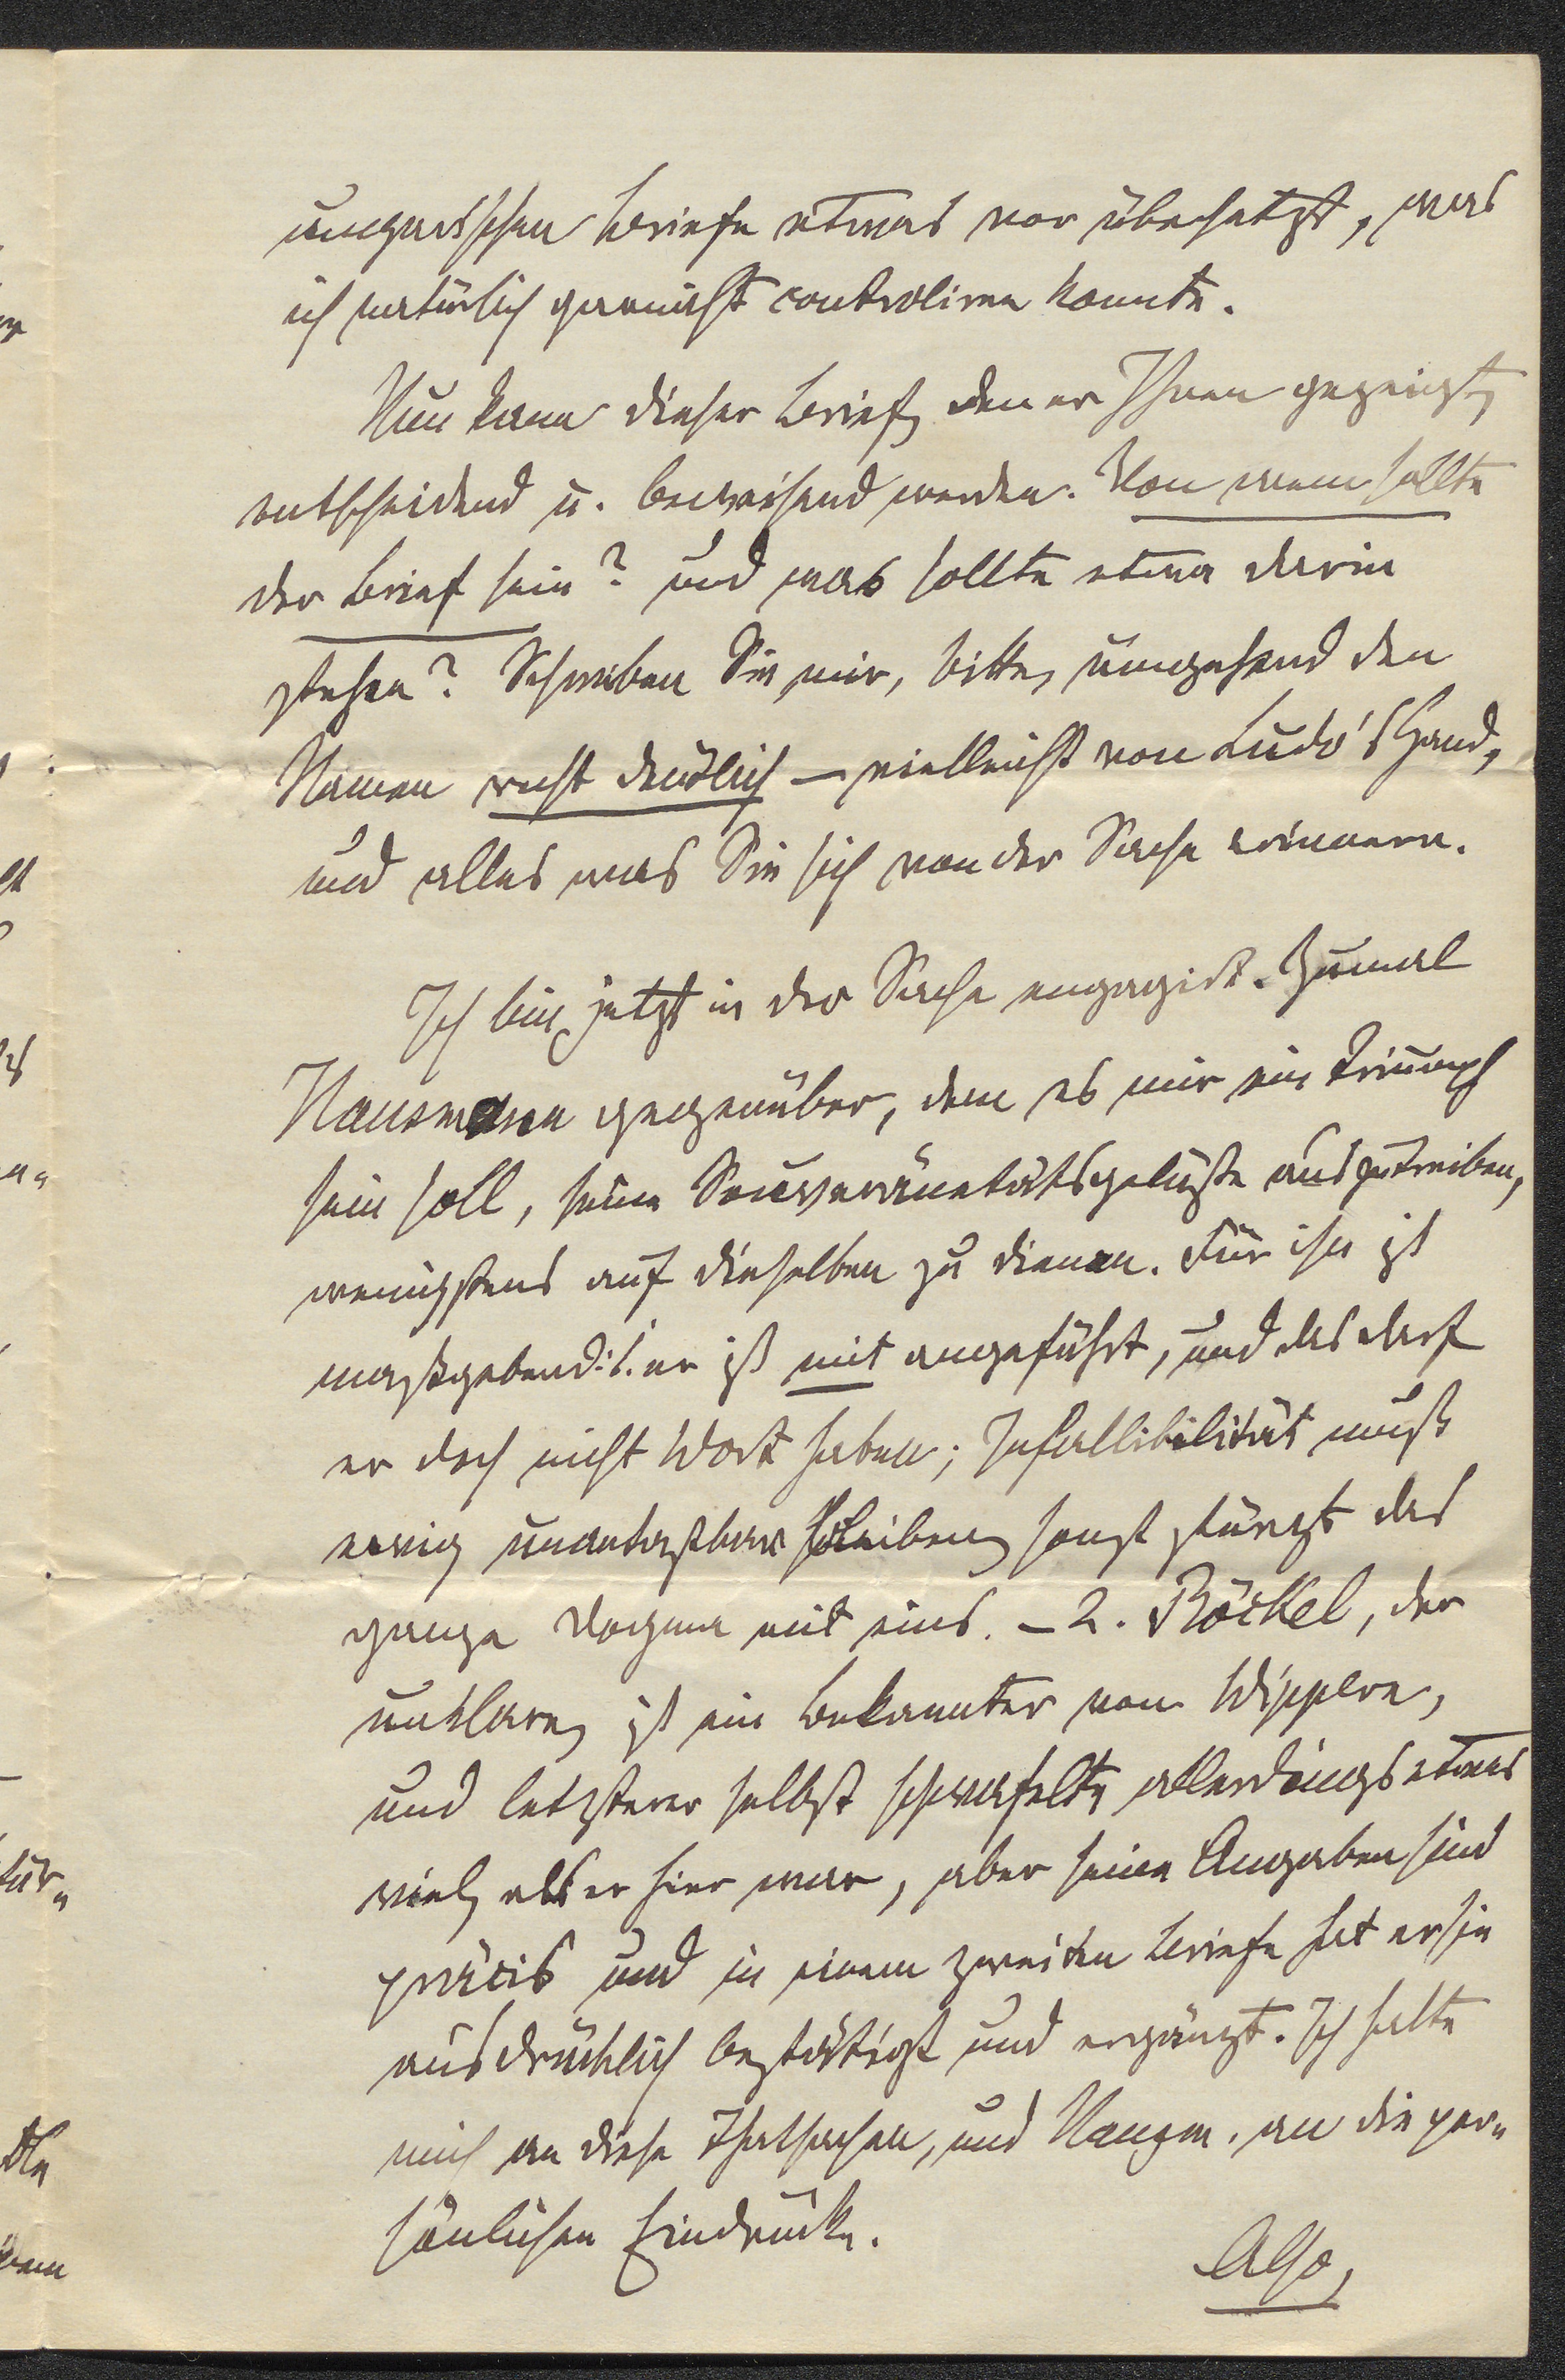 ungarischen Briefe etwas vor übersetzt, was
ich natürlich garnicht controliren konnte.
Nun kann dieser Brief, den er Ihnen gezeigt,
entscheidend u. beweisend werden. Von wem sollte
der Brief sein? und was sollte etwa darin
stehen? Schreiben Sie mir, bitte, umgehend den
Namen recht deutlich — vielleicht von Ludo's Hand,
und alles was Sie sich von der Sache erinnern.
Ich bin jetzt in der Sache engagirt. Zumal
Hausmann gegenüber, dem es mir ein Triumph
sein soll, seine Souveränetätsgelüste auszutreiben,
wenigstens auf dieselben zu dienen. Für ihn ist
maßgebend: 1. er ist mit angeführt, und das darf
er doch nicht Wort haben; Infallibilität muß
ewig unantastbar bleiben, sonst stürzt das
ganze Dogma mit eins. – 2. Röckel, der
unklare, ist ein Bekannter von Wippern,
und letzterer selbst schwafelte allerdings etwas
viel, als er hier war, aber seine Angaben sind
präcis und in einem zweiten Briefe hat er sie
ausdrücklich bestätigt und ergänzt. Ich halte
mich an diese Thatsachen, und an die per-
sönlichen Eindrücke.
Also,